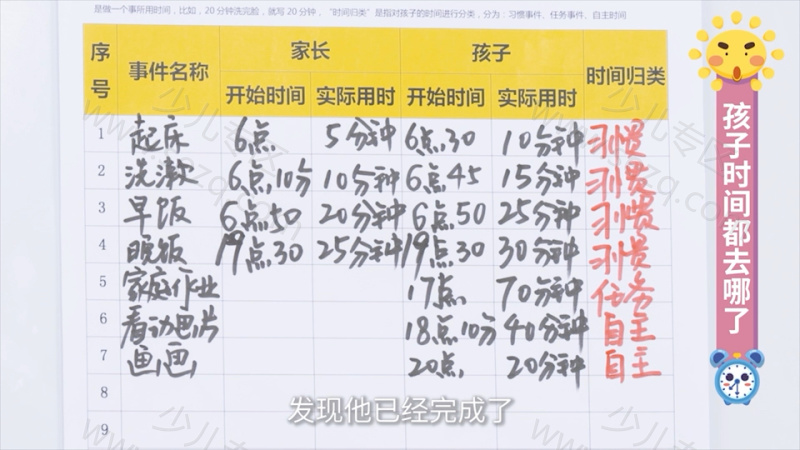 是做一个事所用时间，比如，20分钟洗完脸，就写20分钟，"时间归类"是指对孩子的时间进行分类，分为：习惯事件、任务事件、自主时间
序号 事件名称 家长 孩子 时间归类
开始时间 实际用时 开始时间 实际用时
1 起床 6点 5分钟 6点30 10分钟 习惯
2 洗漱 6点10分 10分钟 6点45 15分钟 习惯
3 早饭 6点50 20分钟 6点50 25分钟 习惯
4 晚饭 19点30 25分钟 19点30 30分钟 习惯
5 家庭作业 17点 70分钟 任务
6 看动画片 18点10分 40分钟 自主
7 画画 20点 20分钟 自主
8
9
孩子时间都去哪了
发现他已经完成了